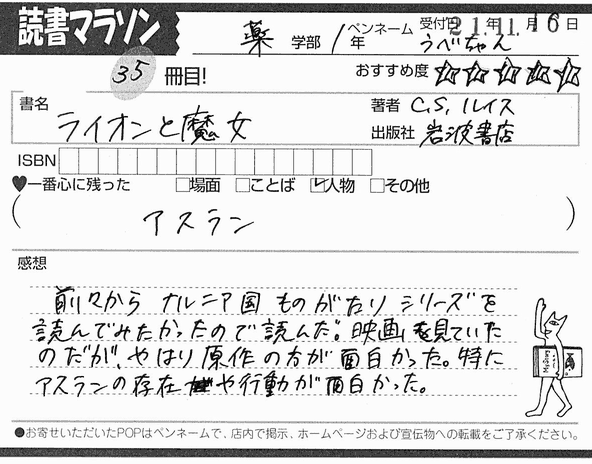 読書マラソン
薬 学部 1年 ペンネーム うべちゃん 受付日 21年11月16日
35 冊目! おすすめ度 ☆☆☆☆☆
書名 ライオンと魔女
著者 C.S.ルイス
出版社 岩波書店
ISBN
♥一番心に残った □場面 □ことば ☑人物 □その他
( アスラン )
感想
前々から ナルニア国 ものがたり シリーズを
読んでみたかったので読んだ。映画を見ていた
のだが、やはり原作の方が面白かった。特に
アスランの存在や行動が面白かった。
●お寄せいただいたPOPはペンネームで、店内で掲示、ホームページおよび宣伝物への転載をご了承ください。